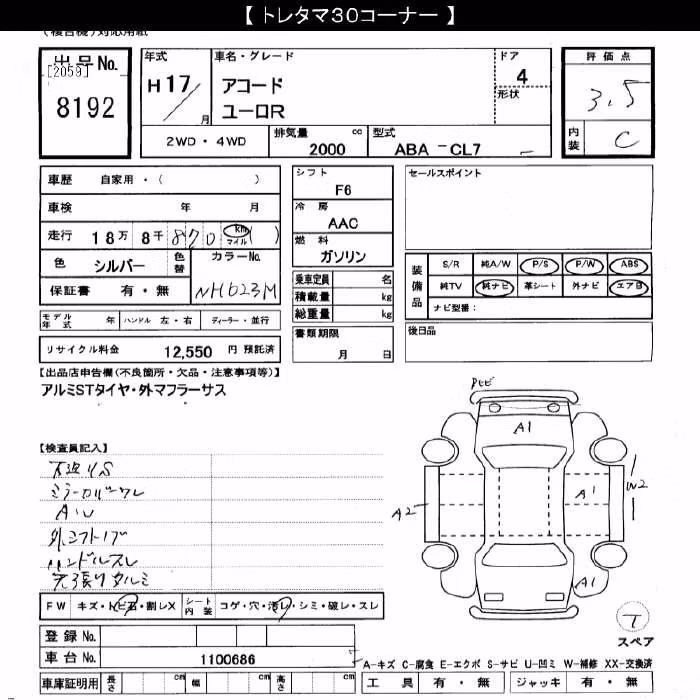 【 トレタマ30コーナー 】
出品No.
[2059]
8192
年式
H17/月
車名・グレード
アコード
ユーロR
ドア
4
形状
2WD・4WD
排気量 cc
2000
型式
ABA-CL7
評価点
3.5
内装
C
車歴 自家用・( )
車検 年 月
走行 18万 8千 870 km マイル ( )
色 シルバー 色替
カラーNo.
NH623M
保証書 有・無
モデル年式 年 ハンドル 左・右 ディーラー・並行
リサイクル料金 12,550 円 預託済
シフト
F6
冷房
AAC
燃料
ガソリン
乗車定員 名
積載量 kg
総重量 kg
書類期限
月 日
セールスポイント
装備品
S/R 純A/W P/S P/W ABS
純TV 純ナビ 革シート 外ナビ エアB
ナビ型番:
後日品
【出品店申告欄(不良箇所・欠品・注意事項等)】
アルミSTタイヤ・外マフラーサス
【検査員記入】
ミラーカバーワレ
A・U
外シフトノブ
ハンドルスレ
天張りタルミ
トビ
A1
A1
A2
W2
A1
T
スペア
FW キズ・トビ石・割レX シート内装 コゲ・穴・汚レ・シミ・破レ・スレ
登録No.
車台No. 1100686
車庫証明用 長さ cm 幅 cm 高さ cm
A-キズ C-腐食 E-エクボ S-サビ U-凹ミ W-補修 XX-交換済
工具 有・無 ジャッキ 有・無